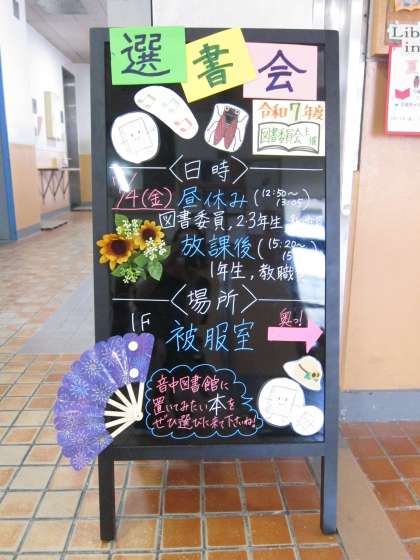 選書会
令和7年度
図書委員会主催
〈日時〉
/4(金) 昼休み (12:50〜13:05)
図書委員, 2.3年生
放課後 (15:20〜
1年生, 教職
〈場所〉
1F 被服室 奥っ!
音中図書館に
置いてみたい本を
ぜひ選びに来て下さいね!
Lib
in